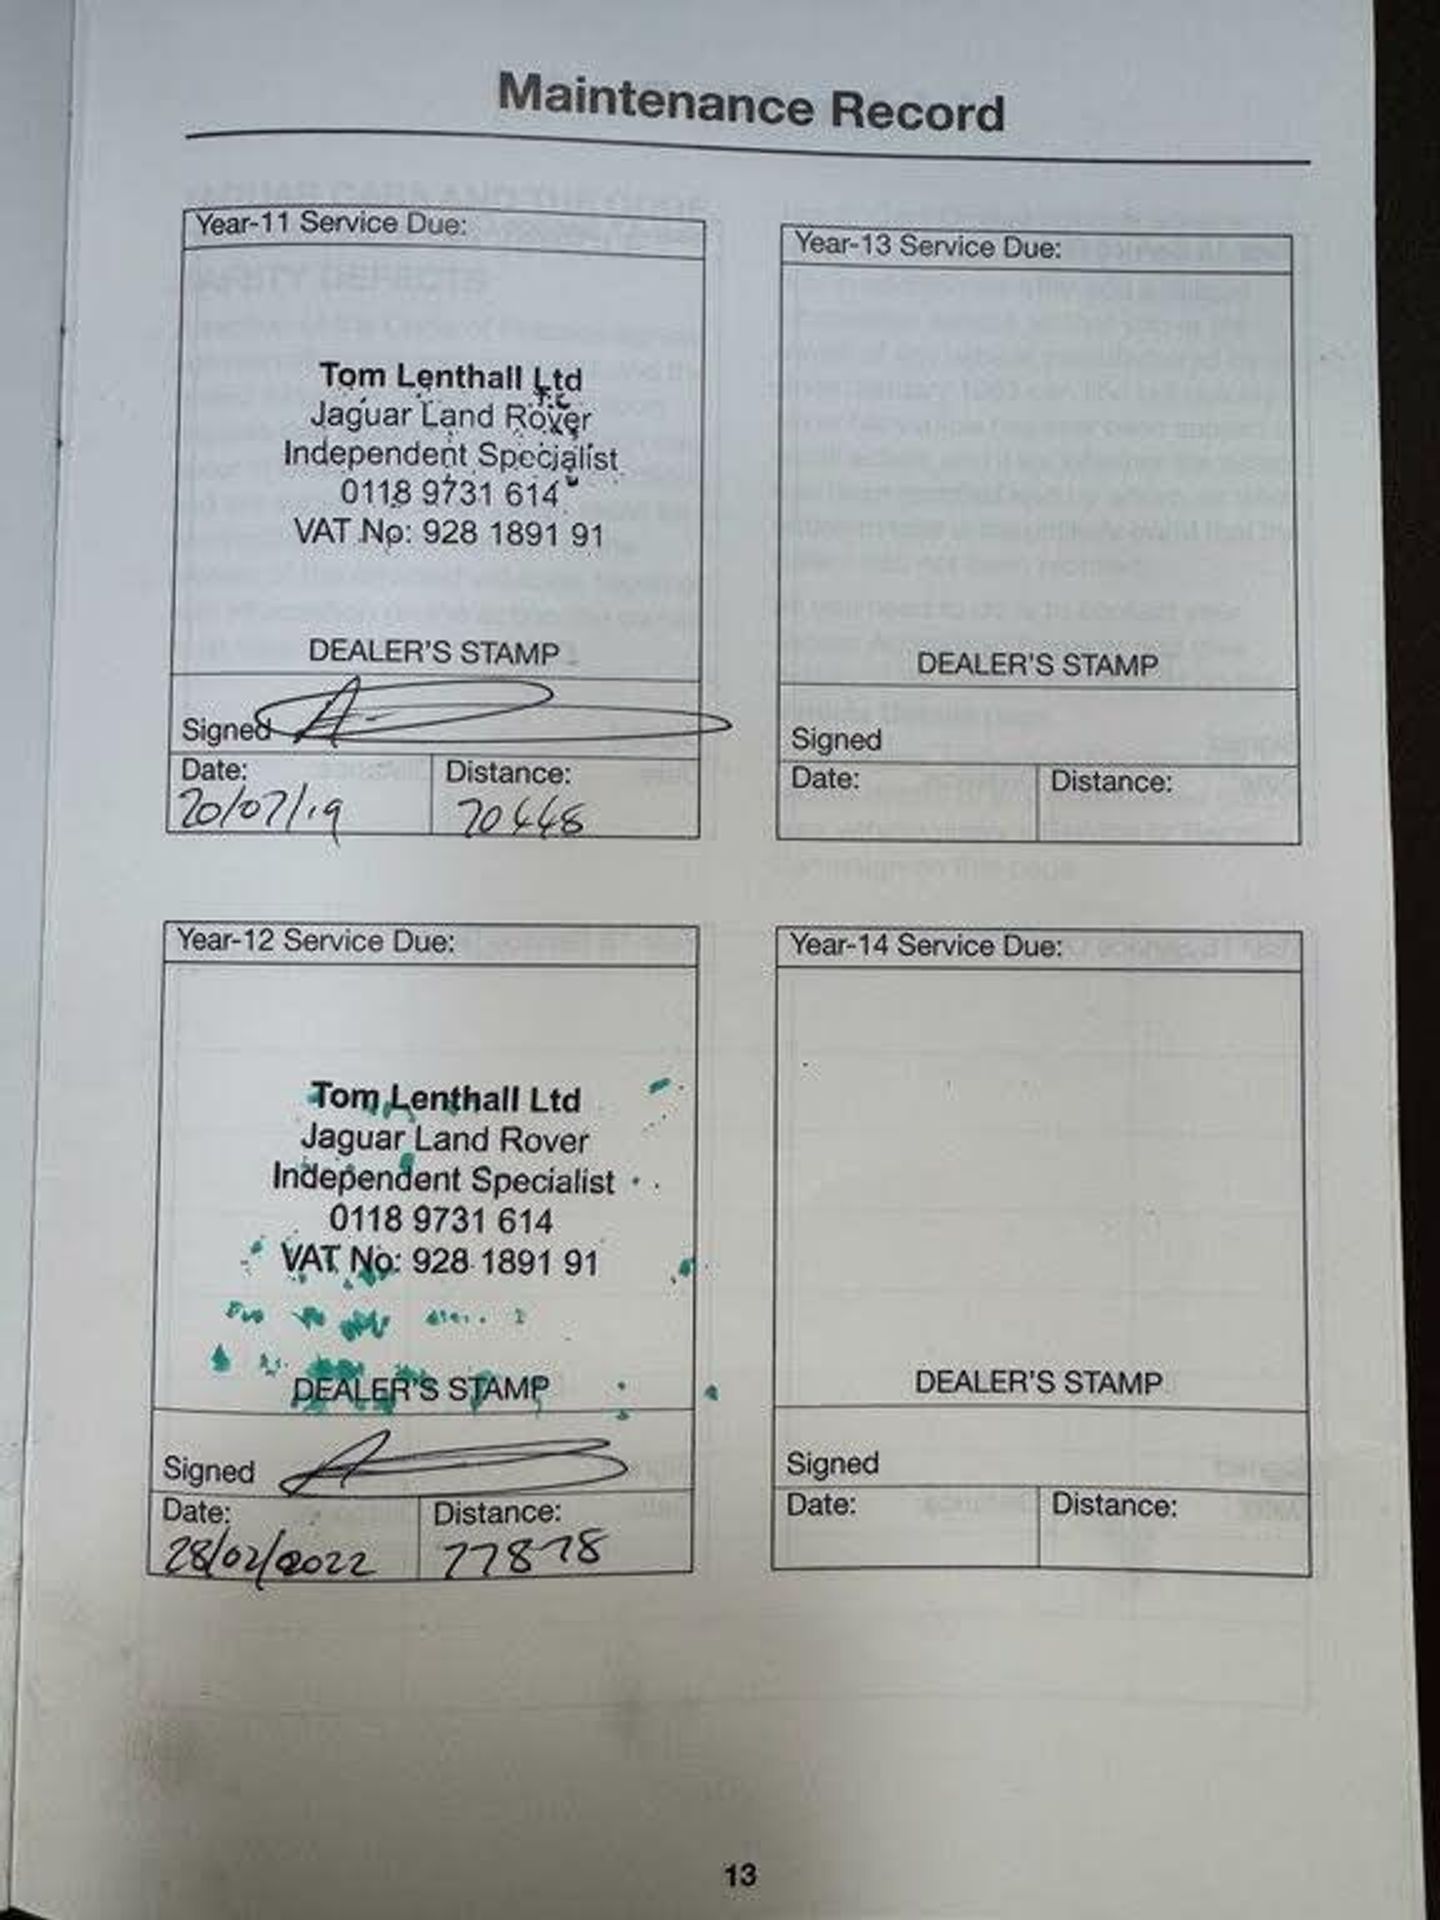 Maintenance Record
Year-11 Service Due:
Tom Lenthall Ltd
Jaguar Land Rover
Independent Specialist
0118 9731 614
VAT No: 928 1891 91
DEALER'S STAMP
Signed
Date:
Distance:
20/07/19
70448
Year-13 Service Due:
DEALER'S STAMP
Signed
Date:
Distance:
Year-12 Service Due:
Tom Lenthall Ltd
Jaguar Land Rover
Independent Specialist
0118 9731 614
VAT No: 928 1891 91
DEALER'S STAMP
Signed
Date:
Distance:
28/02/2022
77878
Year-14 Service Due:
DEALER'S STAMP
Signed
Date:
Distance:
13